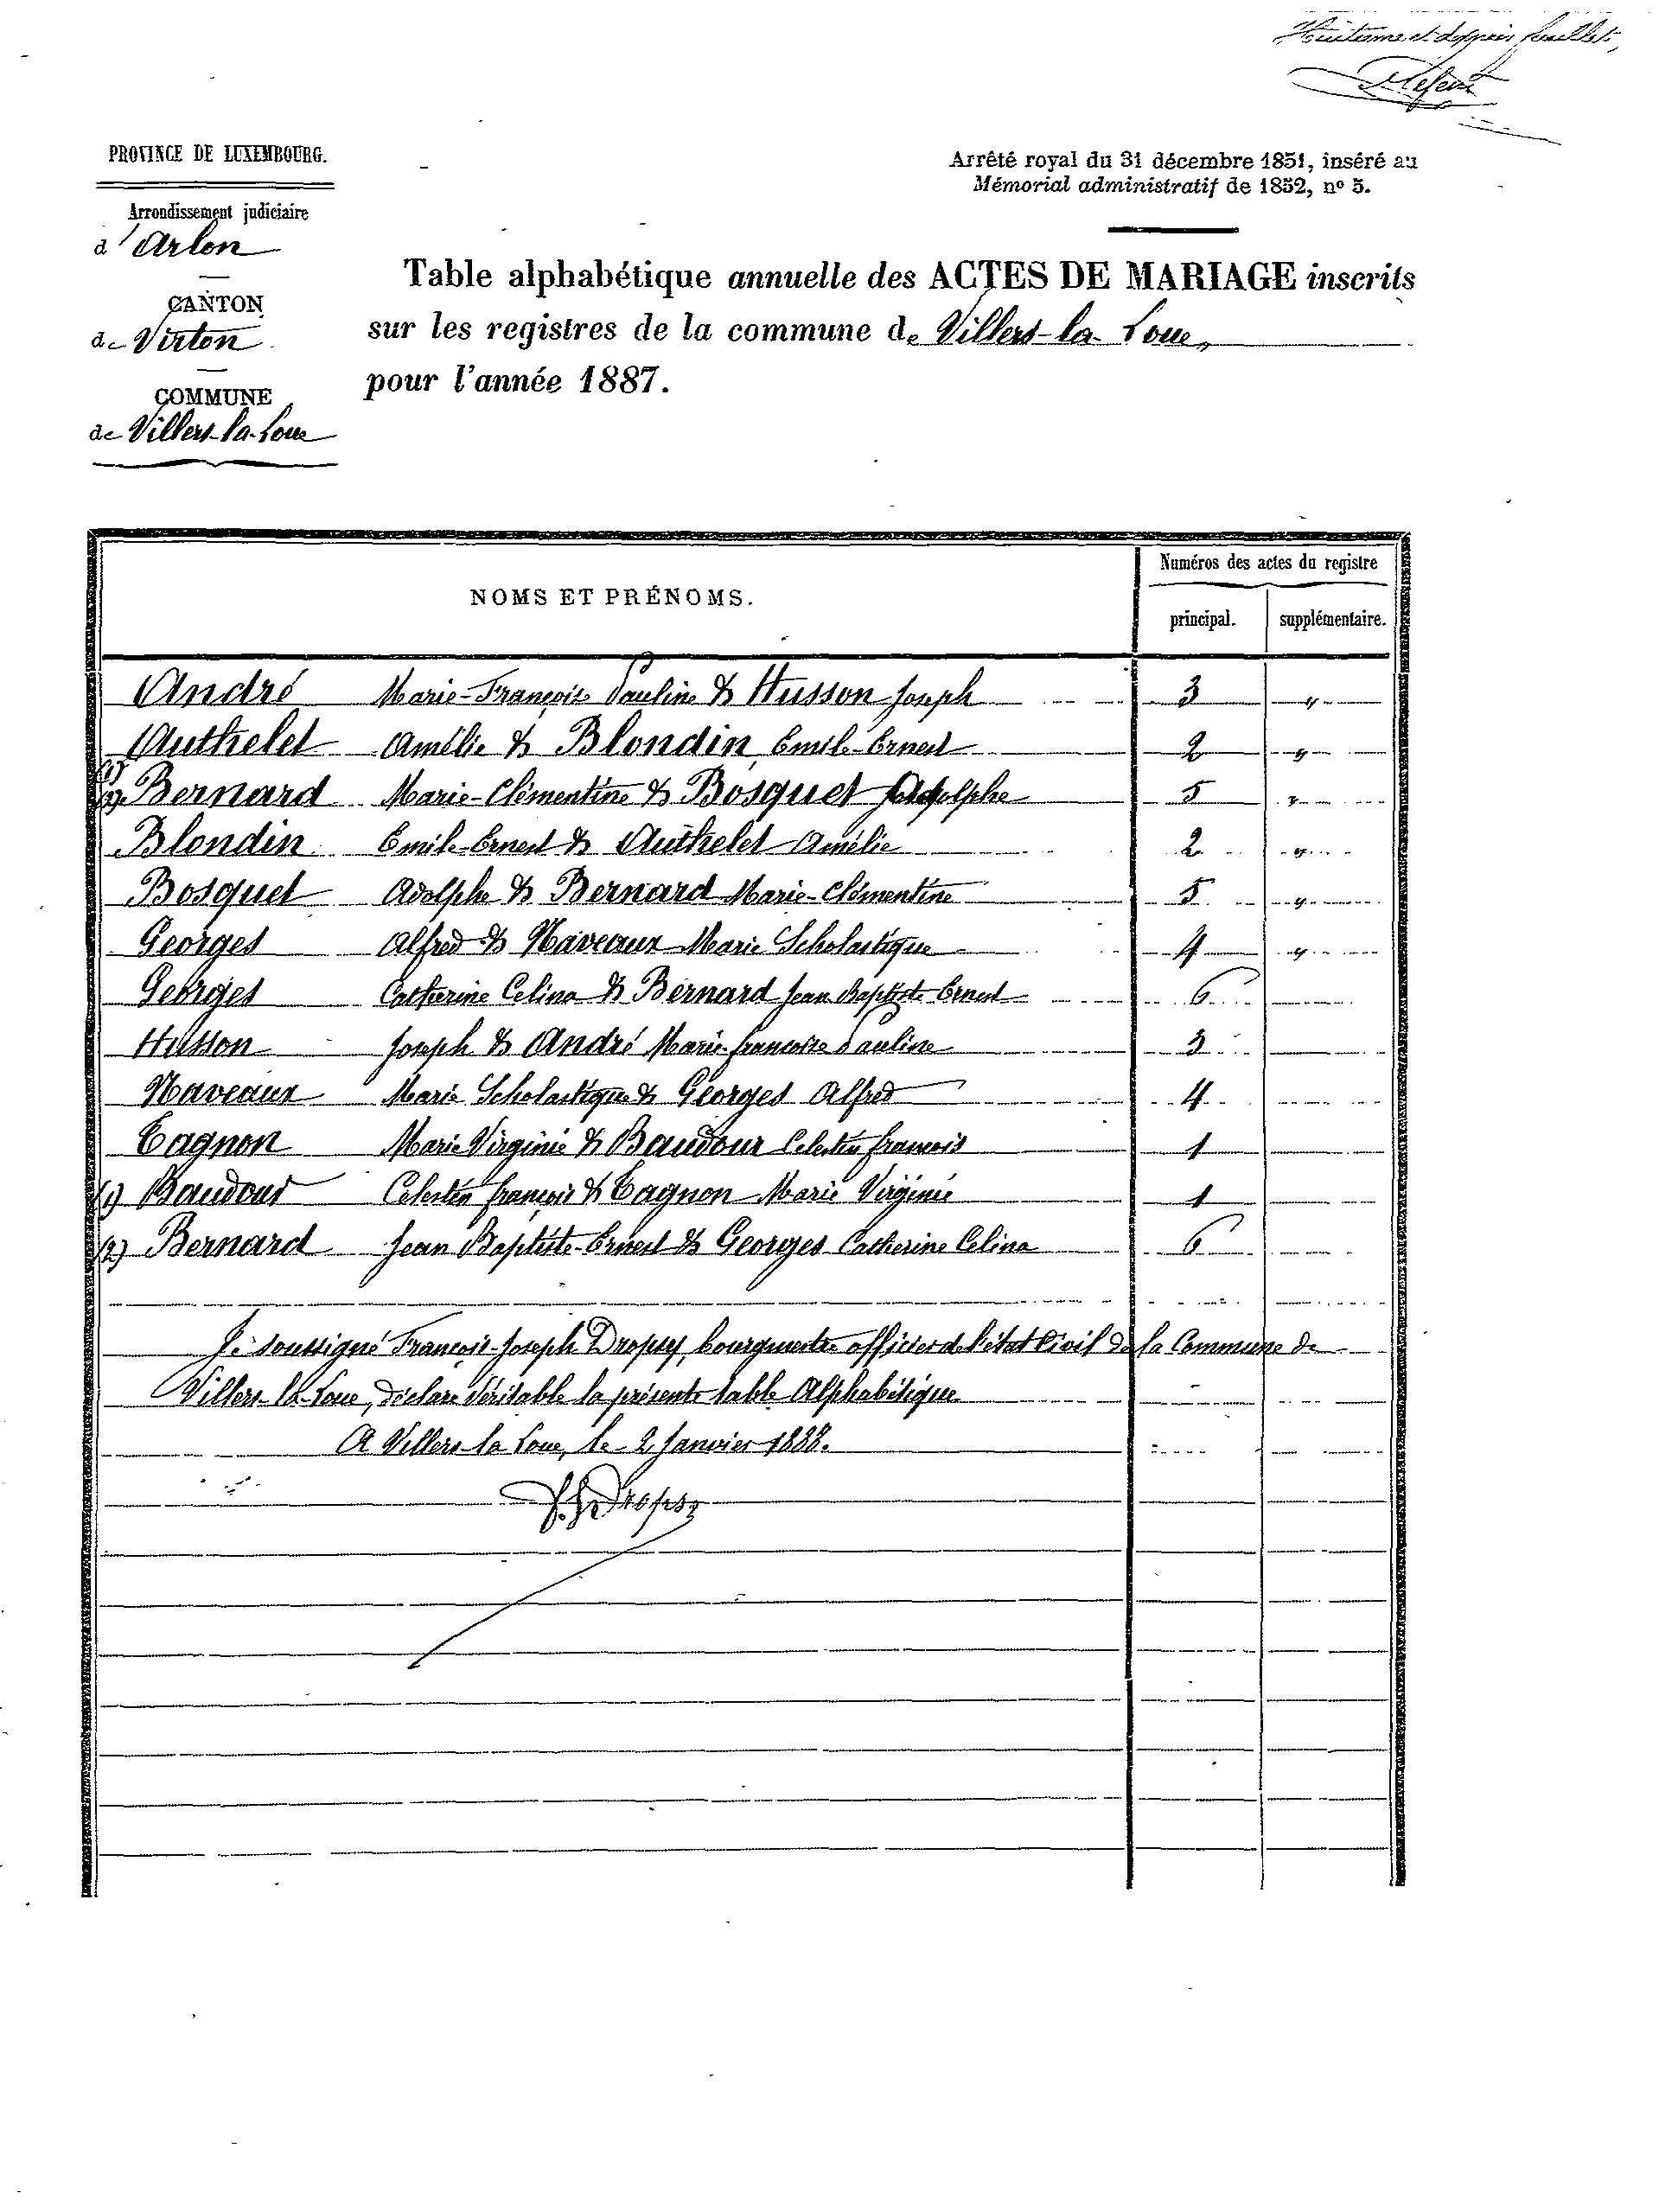 Huitième et dernier feuillet,
PROVINCE DE LUXEMBOURG.
Arrondissement judiciaire
d'Arlon
CANTON
de Virton
COMMUNE
de Villers-la-Loue
Arrêté royal du 31 décembre 1851, inséré au
Mémorial administratif de 1852, nº 5.
Table alphabétique annuelle des ACTES DE MARIAGE inscrits
sur les registres de la commune de Villers-la-Loue,
pour l'année 1887.
NOMS ET PRÉNOMS.
Numéros des actes du registre
principal. supplémentaire.
André Marie-Françoise Pauline & Husson Joseph 3 "
Authelet Amélie & Blondin, Emile-Ernest 2 "
(1)
(2) Bernard Marie-Clémentine & Bosquet Adolphe 5 "
Blondin Emile-Ernest & Authelet Amélie 2 "
Bosquet Adolphe & Bernard Marie-Clémentine 5 "
Georges Alfred & Naveaux Marie Scholastique 4 "
Georges Catherine Celina & Bernard Jean Baptiste Ernest 6
Husson Joseph & André Marie-françoise Pauline 3
Naveaux Marie Scholastique & Georges Alfred 4
Tagnon Marie Virginie & Baudour Celestin françois 1
(1) Baudour Celestin françois & Tagnon Marie Virginie 1
(2) Bernard Jean Baptiste-Ernest & Georges Catherine Celina 6
Je soussigné François-Joseph Dropsy, bourgmestre officier de l'état Civil de la Commune de
Villers-la-Loue, déclare véritable la présente table Alphabétique
A Villers-la-Loue, le 2 Janvier 1888.
F. J. Dropsy